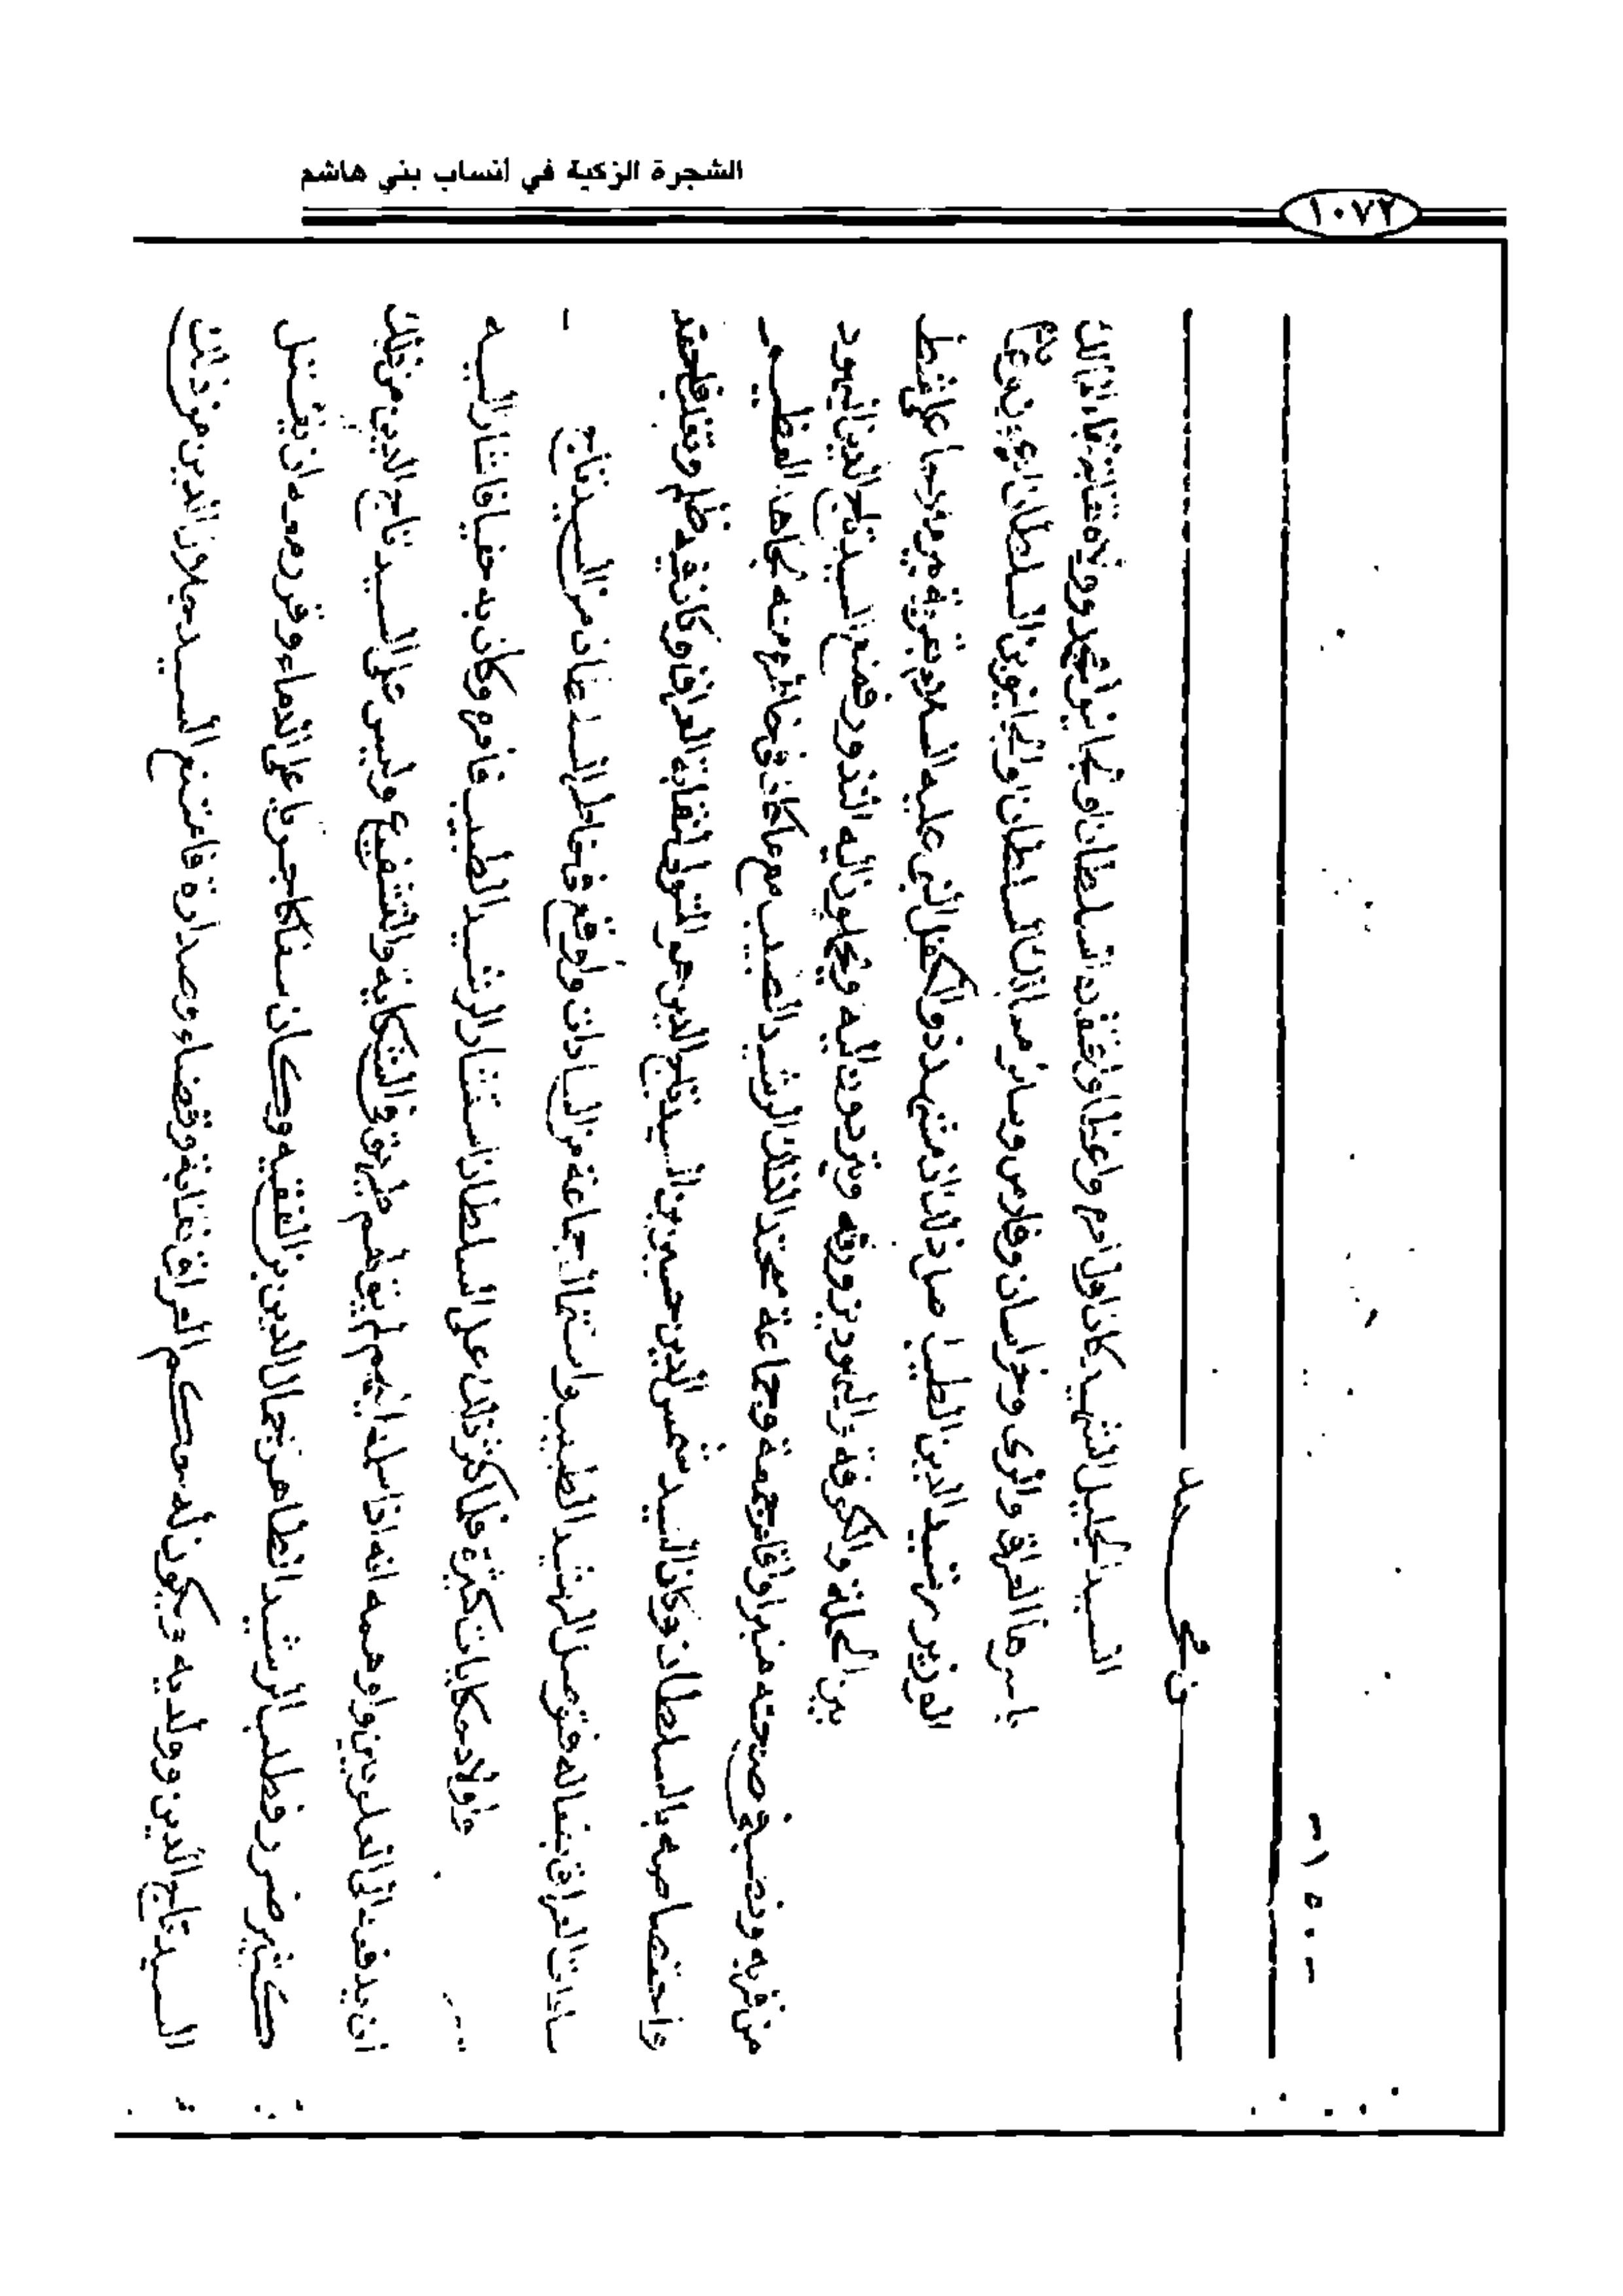 الشجرة الزكية في انساب بني هاشم
١٠٧٢
-١٥٠-
السيد الجليل الشهيد كان اول امره واعظا واعتقده السلطان اولجايتو محمد وولاه نقابة نقباء الممالك
باسرها العراق والرى وخراسان وفارس وسائر ممالك السلطان اولجايتو بن السلطان ارغون
الوزير رشيد الدين الطبيب اصل ذلك ان مشهد ذو الكفل النبى عليه السلام بقرية بيرملاحا على شط
بين الحلة والكوفة واليهود يزورونه ويترددون اليه ويحملون اليه النذور فمنع السيد تاج الدين اليهود
من قربه ونصب فى صحنه منبرا واقام جمعة وجماعة فحقد ذلك الرشيد الطبيب مع ما كان فى خاطره منه بجاهه العظيم
واختصاصه بالسلطان وكان السيد شمس الدين حسين بن السيد تاج الدين هو المتولى لنقابة العراق وكان فيه ظلم وتغلب فاحقد
سادات العراق بفعاله فتوصل الرشيد الطبيب واستمال جماعة من السادات واوقع فى خاطر السلطان من السيد تاج -
واولاده حكايات كثيرة فلما كثر ذلك على السلطان استشار الرشيد الطبيب فى امره وكان به حفيا فاشار اليه
ان يدفعه الى العلويين واوهمه انه اذا سلمه اليهم لم يبق لهم طريق فى الشكاية والتشنيع وليس على السيد تاج الدين من ذلك
كثير ضرر فطلب الرشيد الطاهر جمال الدين بن الفقيه وكان سفاكا جريا على الدماء وقرر معه ان يقتل
السيد تاج الدين وولديه ويكون له حكم العراق نقابة وقضاء وصدارة فامتنع السيد جلال الدين من ذلك